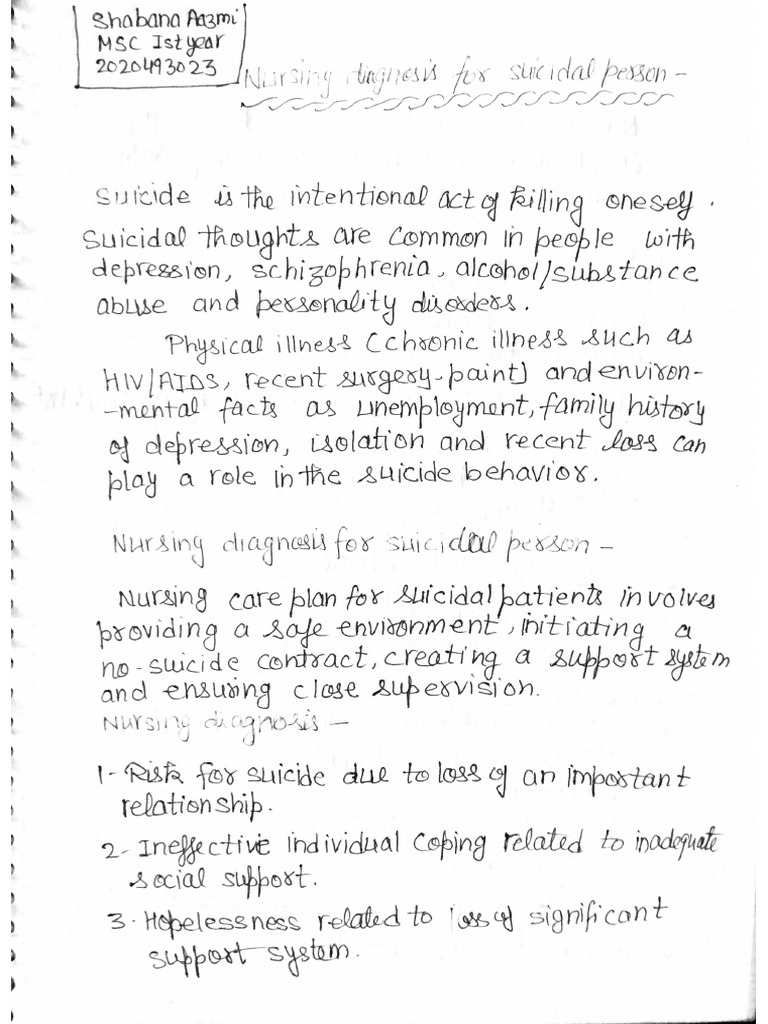 Shabana Aazmi
MSC Ist year
2020493023
Nursing diagnosis for suicidal person -
Suicide is the intentional act of killing oneself.
Suicidal thoughts are common in people with
depression, schizophrenia, alcohol/substance
abuse and personality disorders.
Physical illness (chronic illness such as
HIV/AIDS, recent surgery-paint) and environ-
-mental facts as unemployment, family history
of depression, isolation and recent loss can
play a role in the suicide behavior.
Nursing diagnosis for suicidal person -
Nursing care plan for suicidal patients involves
providing a safe environment, initiating a
no-suicide contract, creating a support system
and ensuring close supervision.
Nursing diagnosis -
1- Risk for suicide due to loss of an important
relationship.
2- Ineffective individual coping related to inadequate
social support.
3. Hopelessness related to loss of significant
support system.